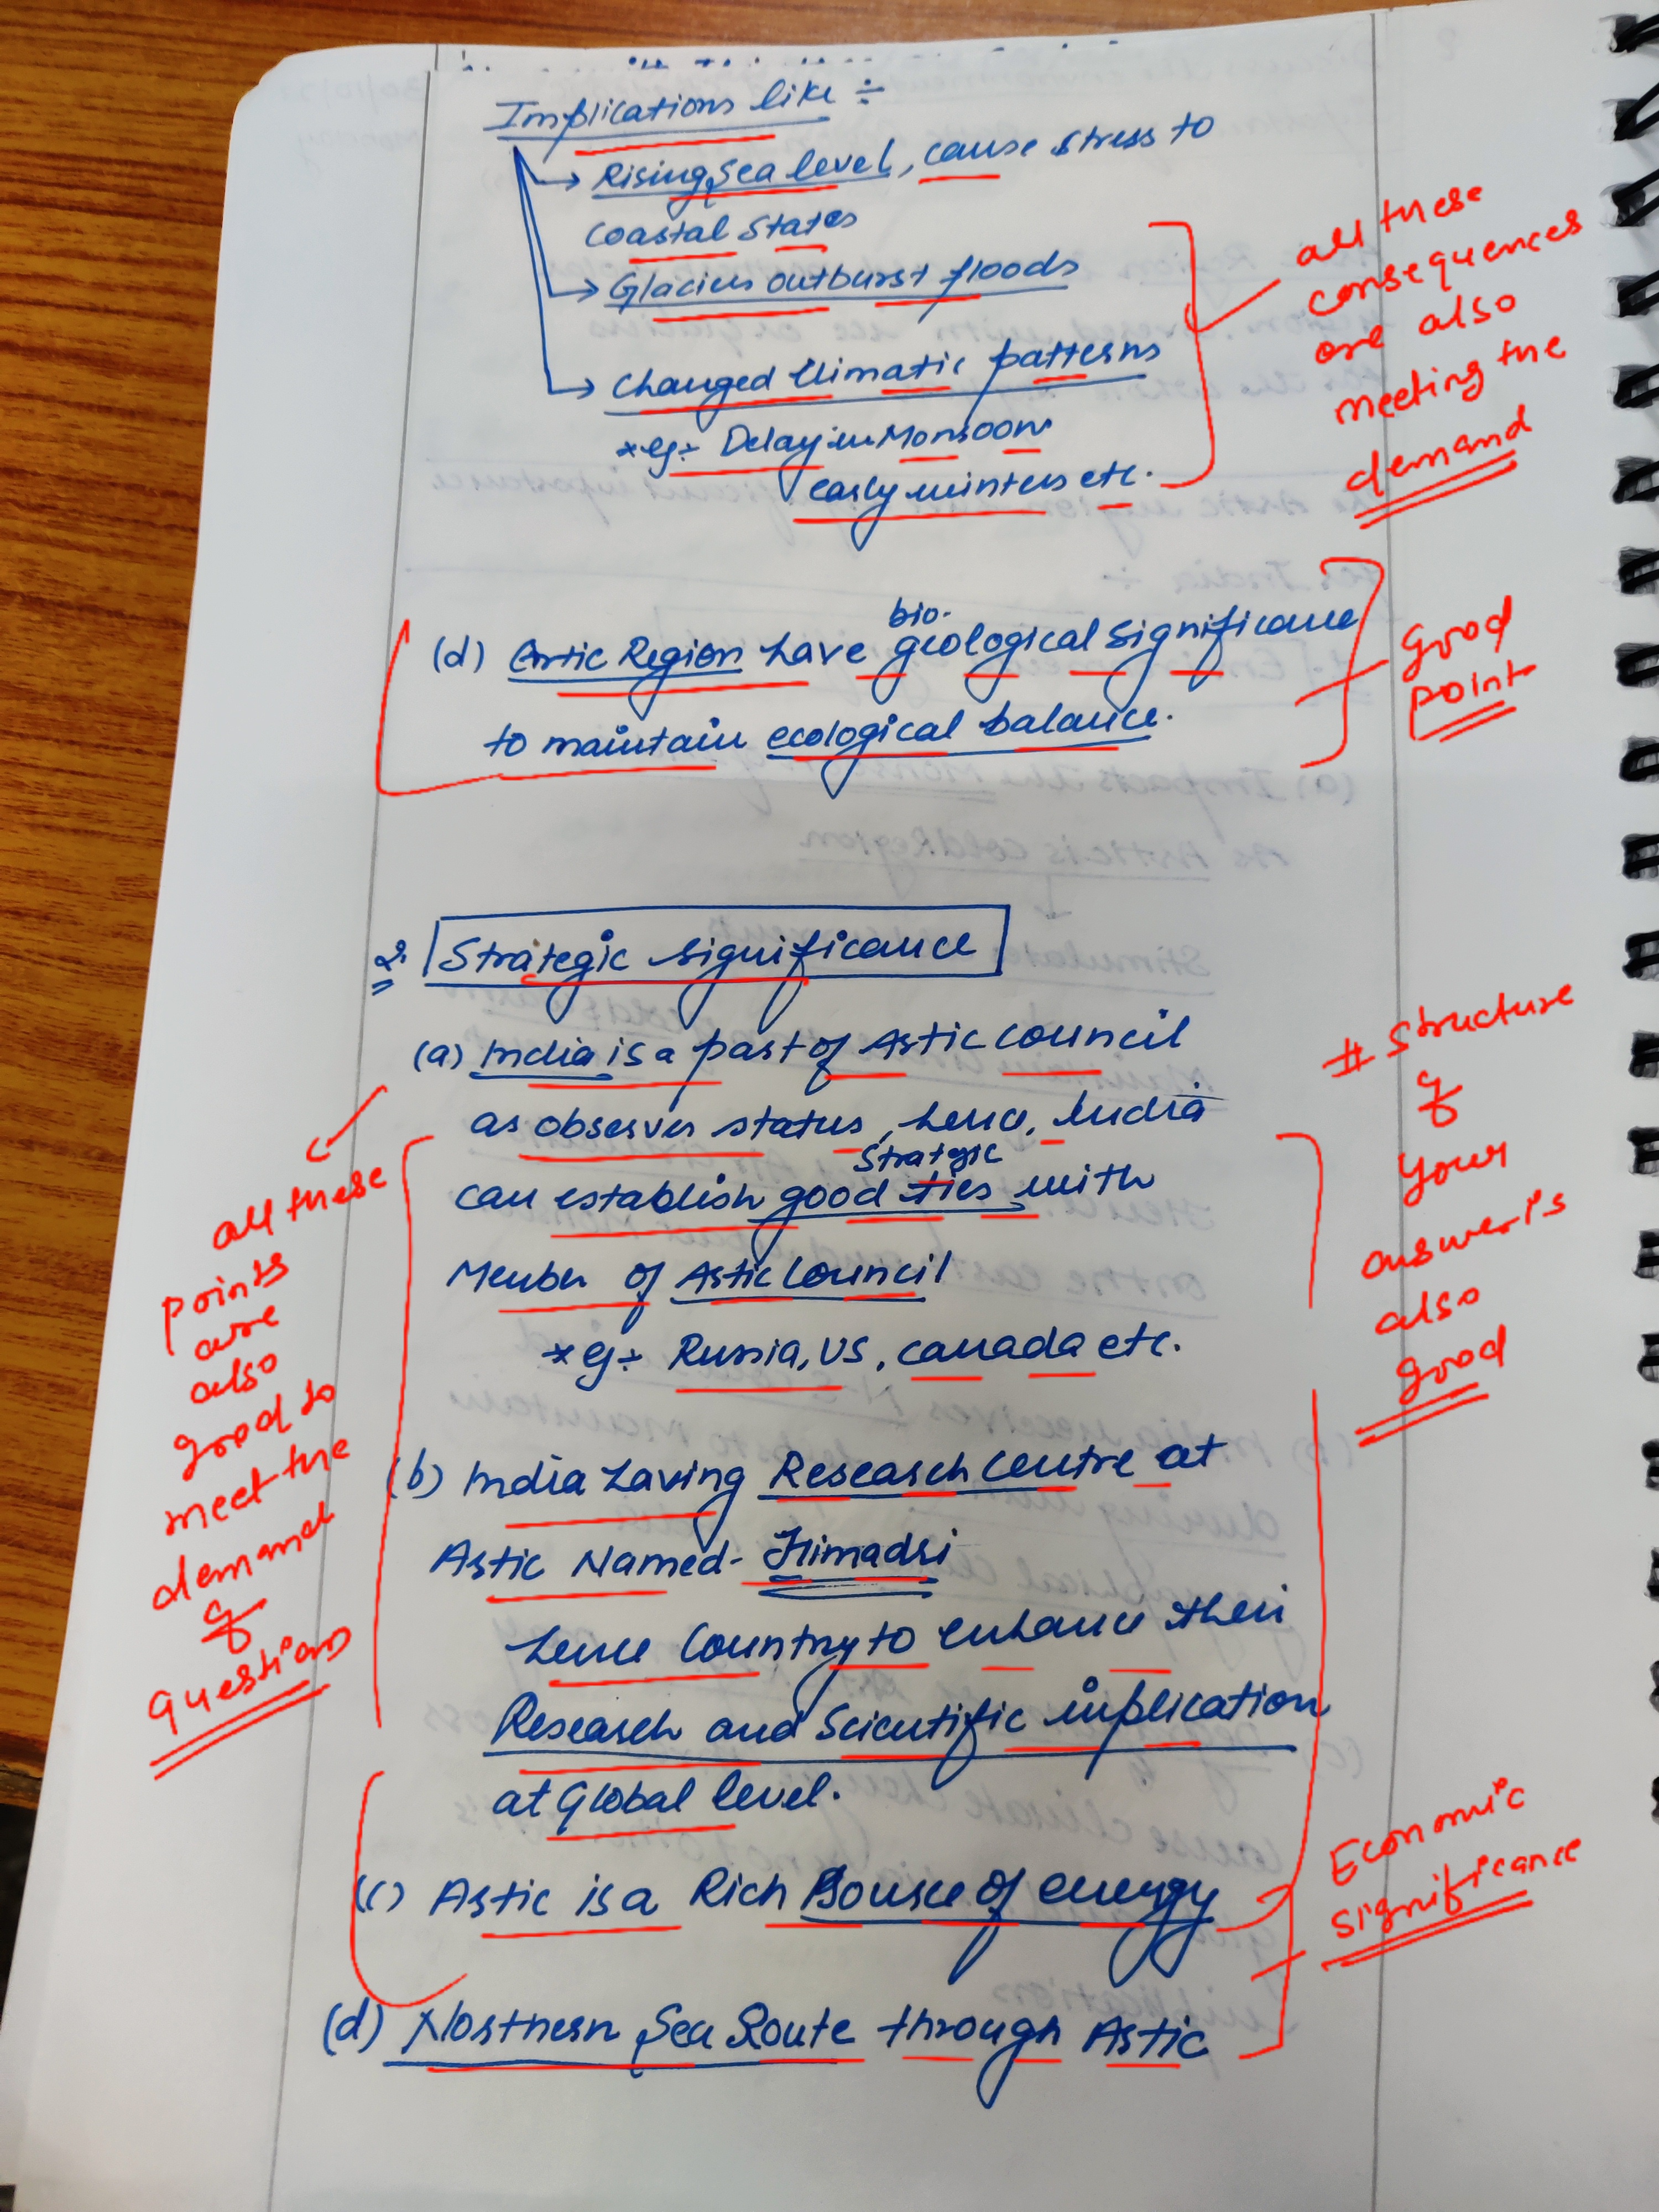 Implications like ÷
→ Rising Sea level, cause stress to
Coastal States
→ Glaciers outburst floods
→ Changed Climatic patterns
*eg÷ Delay in Monsoon
early winters etc.
all these
consequences
are also
meeting the
demand
bio-
(d) Arctic Region have geological significance
to maintain ecological balance.
Good
point
2. Strategic significance
(a) India is a part of Arctic council
as observer status, hence, India
Strategic
can establish good ties with
Member of Arctic Council
*eg÷ Russia, US, Canada etc.
all these
points
are
also
good to
meet the
demand
of
questions
# Structure
of
your
answer is
also
good
(b) India having Research Centre at
Arctic Named- Himadri
hence Country to enhance their
Research and Scientific implication
at Global level.
(c) Arctic is a Rich Source of energy
(d) Northern Sea Route through Arctic
Economic
significance